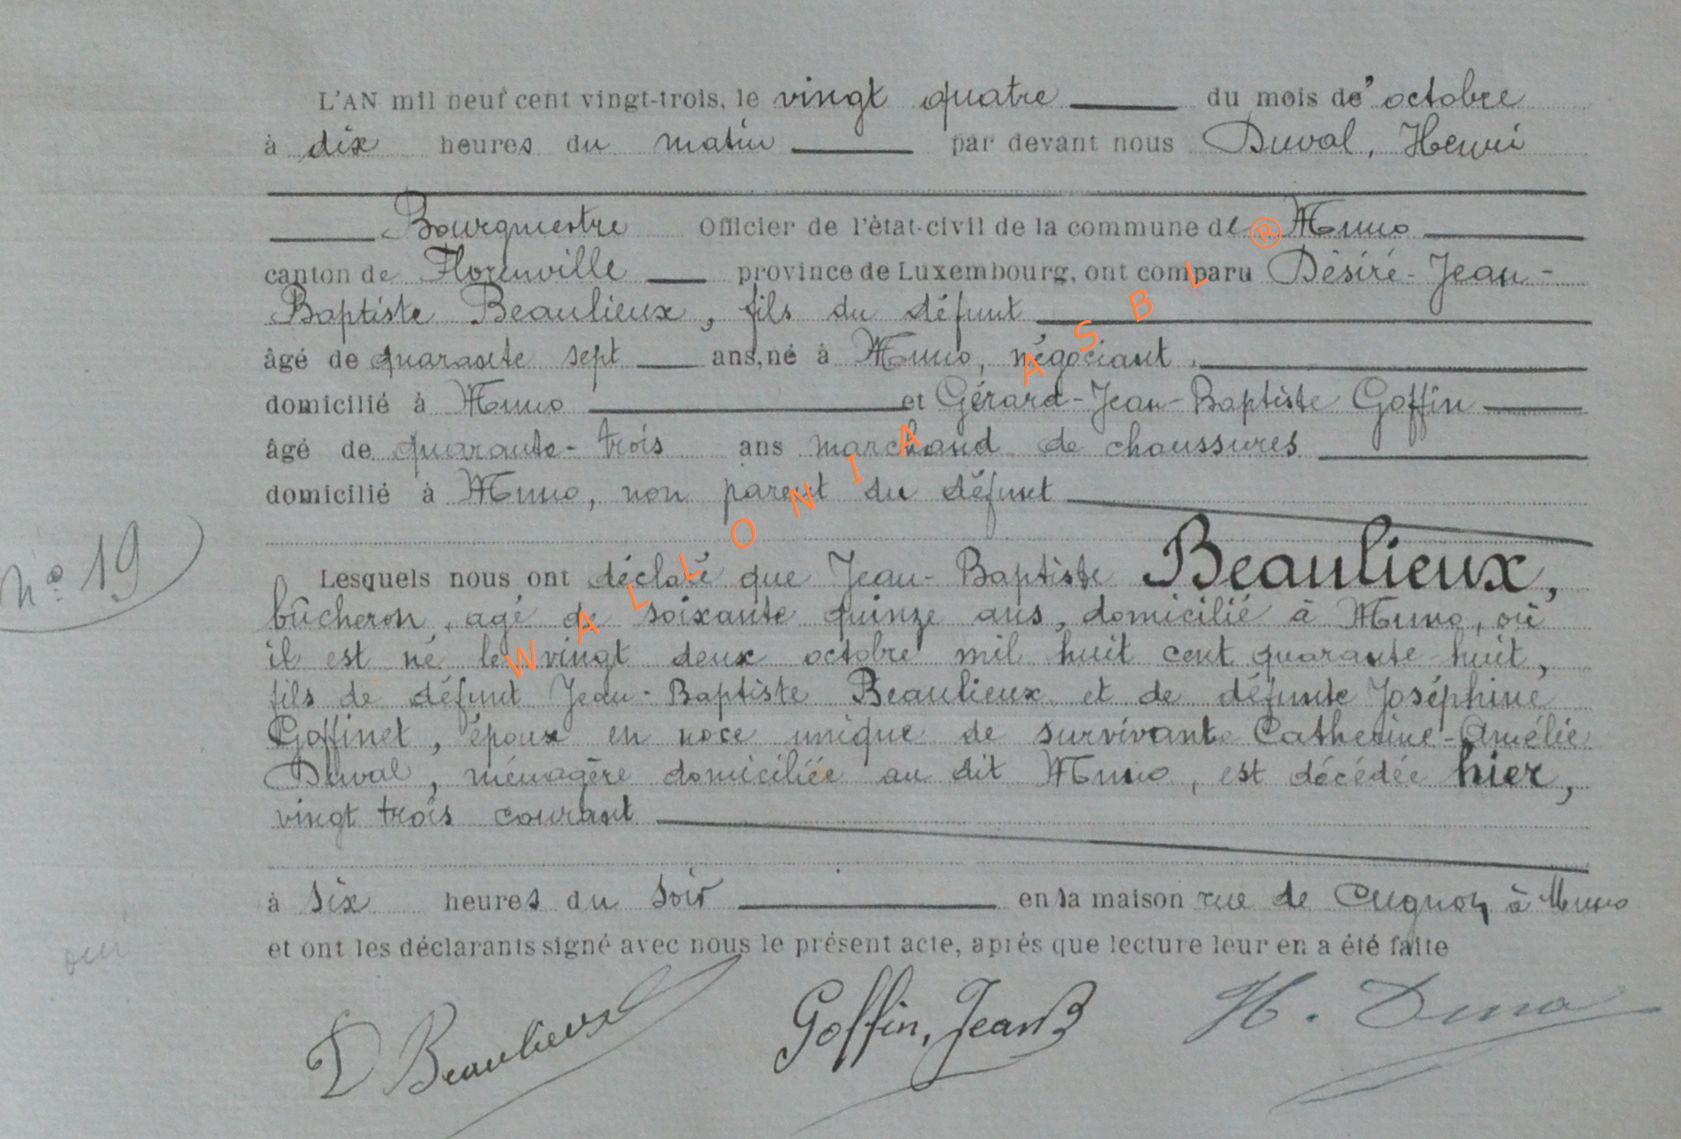 L'AN mil neuf cent vingt-trois, le vingt quatre du mois de' octobre
à dix heures du matin par devant nous Duval, Henri
Bourgmestre Officier de l'état-civil de la commune de ® Muno
canton de Florenville province de Luxembourg, ont comparu Désiré-Jean-
Baptiste Beaulieux, fils du défunt
âgé de quarante sept ans, né à Muno, négociant,
domicilié à Muno et Gérard-Jean-Baptiste Goffin
âgé de quarante-trois ans marchand de chaussures
domicilié à Muno, non parent du défunt
n° 19
Lesquels nous ont déclaré que Jean-Baptiste Beaulieux,
bûcheron, agé de soixante quinze ans, domicilié à Muno, où
il est né le vingt deux octobre mil huit cent quarante huit,
fils de défunt Jean-Baptiste Beaulieux et de défunte Joséphine
Goffinet, époux en noce unique de survivante Catherine-Amélie
Duval, ménagère domiciliée au dit Muno, est décédée hier,
vingt trois courant
à six heures du soir en la maison rue de Cugnon, à Muno
et ont les déclarants signé avec nous le présent acte, après que lecture leur en a été faite
oui
D Beaulieux Goffin, Jean B H. Duva
WALLONIA ASBL